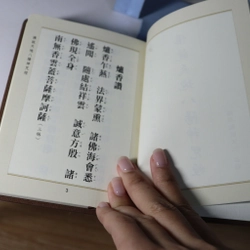 爐香讚
爐香乍爇 法界蒙熏 諸佛海會悉
遙聞 隨處結祥雲 誠意方殷 諸
佛現全身
南無香雲蓋菩薩摩訶薩（三稱）
3